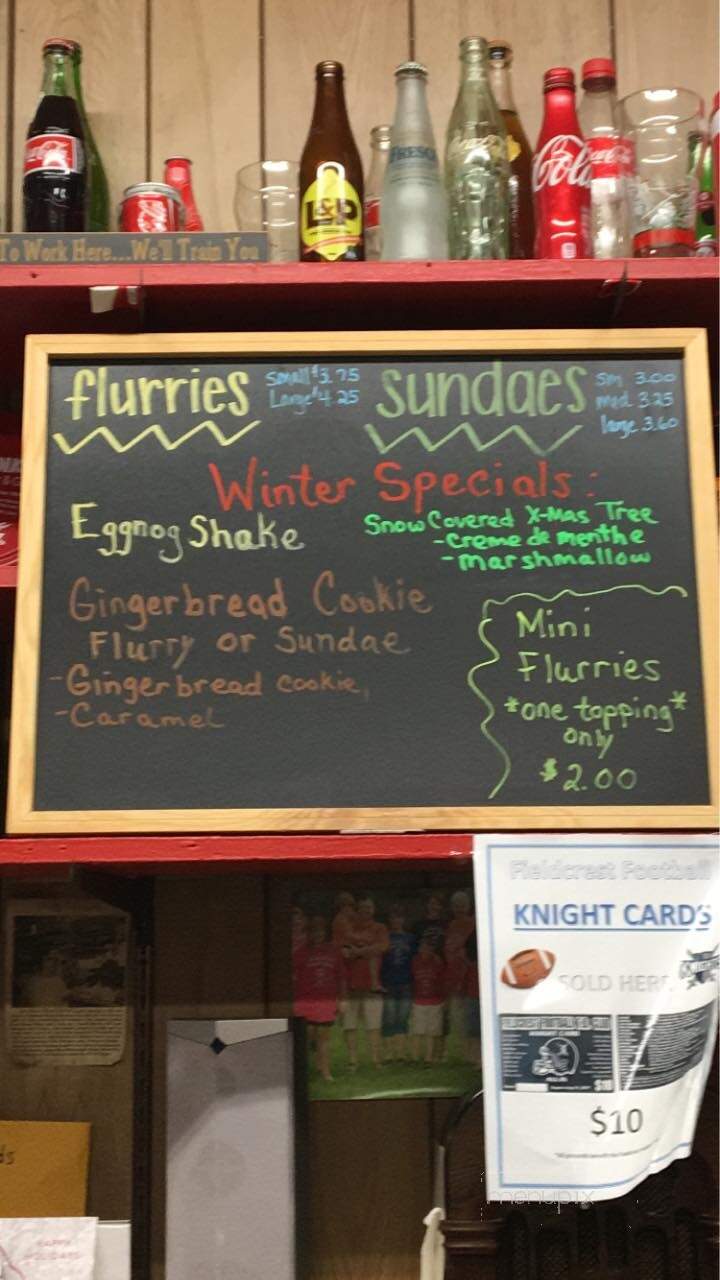 Coca-Cola
L&P
FRESCA
Cola
To Work Here...We'll Train You
flurries
Small $3.75
Large $4.25
sundaes
sm 3.00
med 3.25
large 3.60
Winter Specials:
Eggnog Shake
Snow Covered X-Mas Tree
-creme de menthe
-marshmallow
Gingerbread Cookie
Flurry or Sundae
-Gingerbread cookie,
-Caramel
Mini
Flurries
*one topping*
only
$2.00
Fieldcrest Football
KNIGHT CARDS
SOLD HERE
$10
menupix
HAPPY
HOLIDAYS